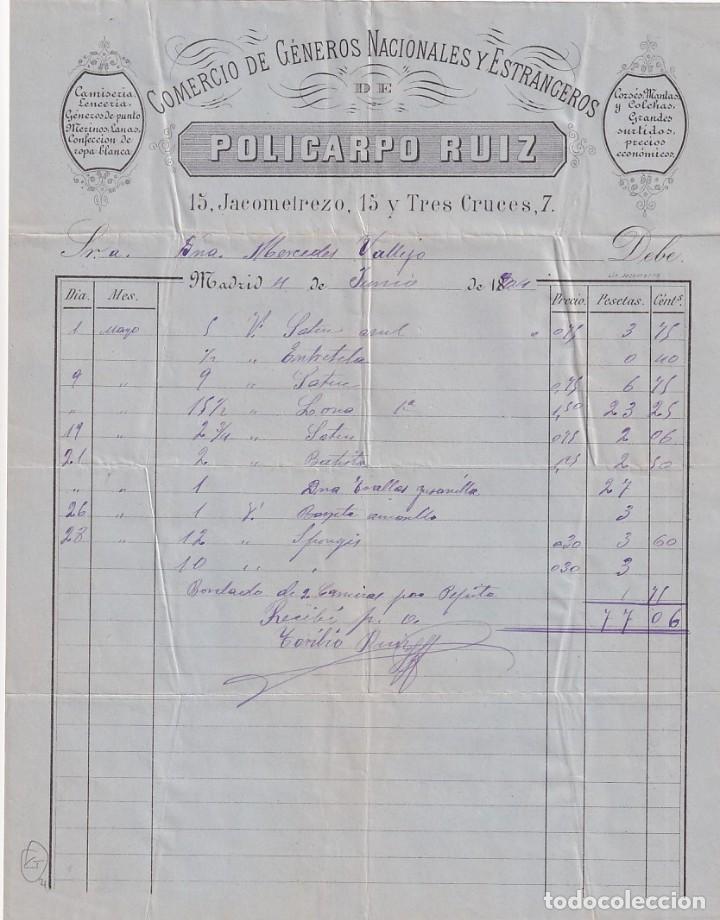 COMERCIO DE GÉNEROS NACIONALES Y ESTRANGEROS
DE
POLICARPO RUIZ
15, Jacometrezo, 15 y Tres Cruces, 7.
Camiseria
Lenceria.
Géneros de punto
Merinos, Lanas,
Confeccion de
ropa blanca
Corsés, Mantas
y Colchas,
Grandes
surtidos,
precios
económicos.
Sr. a. Dña Mercedes Vallejo Debe.
Madrid 4 de Junio de 18
Dia. Mes. Precio. Pesetas. Cént.s
1 Mayo 5 V.s Saten azul 0,75 3 75
1/2 " Entretela 0 40
9 " 9 " Saten 0,75 6 75
" " 15 1/2 " Lona 1ª 1,50 23 25
19 " 2 3/4 " Saten 0,75 2 06
21 " 2 " Batista 1,25 2 50
" " 1 Dna 27
26 " 1 V. amarilla 3
28 " 12 " 0,30 3 60
10 " " 0,30 3
Bordado de 2 Camisas por Pepito 1 75
Recibí p. o. 77 06
Toribio Ruiz
todocoleccion